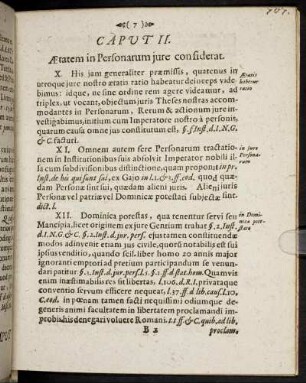 ( 7 )
CAPUT II.
Ætatem in Personarum jure considerat.
X. His jam generaliter præmissis, quatenus in
utroque jure nostro ætatis ratio habeatur deinceps vide-
bimus: idque, ne sine ordine rem agere videamur, ad
triplex, ut vocant, objectum juris Theses nostras accom-
modantes in Personarum, Rerum & actionum jure in-
vestigabimus, initium cum Imperatore nostro à personis,
quarum causa omne jus constitutum est, §. f. Inst. d. I. N. G.
& C. facturi.
Ætatis
habetur
ratio
XI. Omnem autem fere Personarum tractatio-
nem in Institutionibus suis absolvit Imperator nobili il-
la cum subdivisionibus distinctione, quam proponit in pr.
Inst. de his qui sui sui, ex Cajo in l. 1. & 3. ff. eod. quod quæ-
dam Personæ sint sui, quædam alieni juris. Alieni juris
Personæ vel patriæ vel Dominicæ potestati subjectæ sint
dict. l.
in jure
Perso-
narum
XII. Dominica potestas, qua tenentur servi seu
Mancipia, licet originem ex jure Gentium trahat §. 2. Inst.
d. I. N. G. & C. §. 1. Inst. d. jur. pers. ejus tamen constituendæ
modos adinvenit etiam jus civile, quorū notabilis est sui
ipsius venditio, quando scil. liber homo 20 annis major
ignoranti emptori ad pretium participandum se venun-
dari patitur §. 4. Inst. d. jur. pers. l. 5. §. 1. ff. d. stat. hom. Quamvis
enim inæstimabilis res sit libertas, l. 106. d. R. I. privataque
conventio servum efficere nequeat, l. 37. ff. d. lib. caus. l. 10.
C. eod. in pœnam tamen facti nequissimi odiumque de-
generis animi facultatem in libertatem proclamandi im-
probis his denegari voluere Romani t. t. ff. & C. quib. ad lib.
in Domi-
nica pote-
state
B 2
proclam.